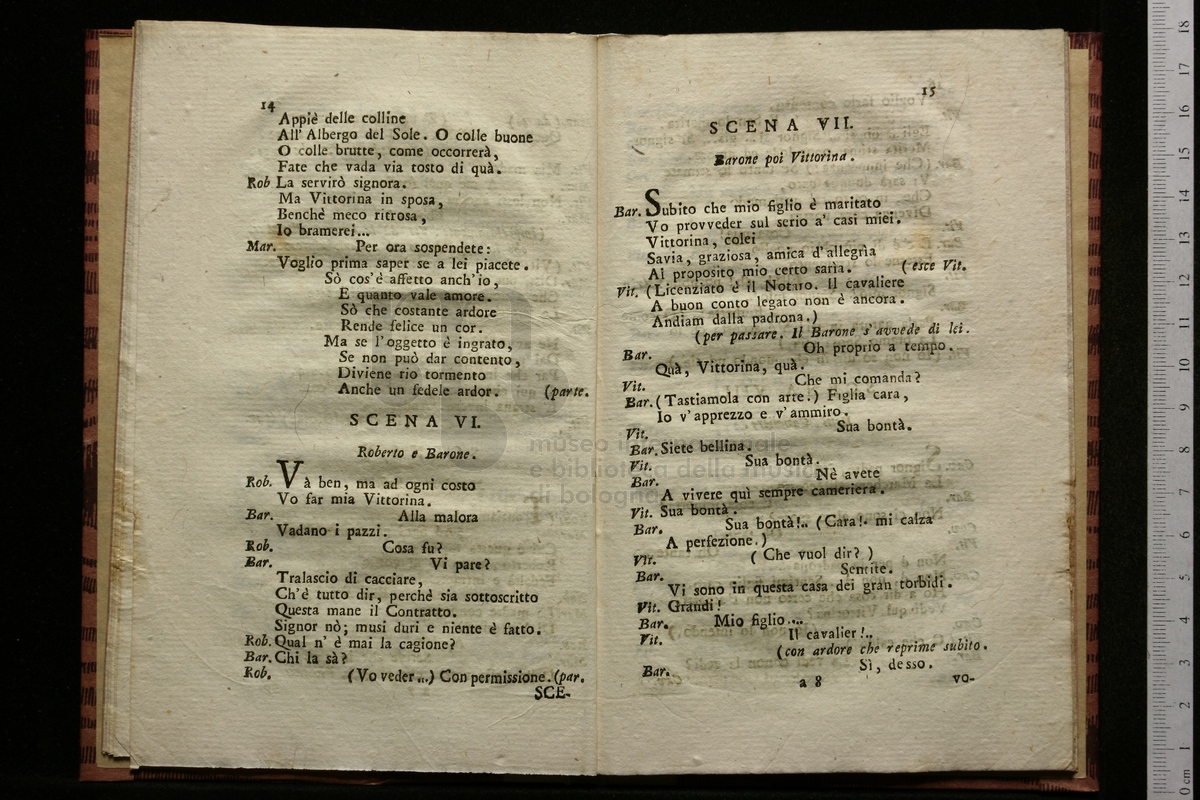 14
Appiè delle colline
All' Albergo del Sole. O colle buone
O colle brutte, come occorrerà,
Fate che vada via tosto di quà.
Rob La servirò signora.
Ma Vittorina in sposa,
Benchè meco ritrosa,
Io bramerei...
Mar. Per ora sospendete:
Voglio prima saper se a lei piacete.
Sò cos'è affetto anch'io,
E quanto vale amore.
Sò che costante ardore
Rende felice un cor.
Ma se l'oggetto è ingrato,
Se non può dar contento,
Diviene rio tormento
Anche un fedele ardor. (parte.
SCENA VI.
Roberto e Barone.
Rob. Và ben, ma ad ogni costo
Vo far mia Vittorina.
Bar. Alla malora
Vadano i pazzi.
Rob. Cosa fu?
Bar. Vi pare?
Tralascio di cacciare,
Ch'è tutto dir, perchè sia sottoscritto
Questa mane il Contratto.
Signor nò; musi duri e niente è fatto.
Rob. Qual n' è mai la cagione?
Bar. Chi la sà?
Rob. (Vo veder...) Con permissione. (par.
SCE-
15
SCENA VII.
Barone poi Vittorina.
Bar. Subito che mio figlio è maritato
Vo provveder sul serio a' casi miei.
Vittorina, colei
Savia, graziosa, amica d'allegrìa
Al proposito mio certo sarìa. (esce Vit.
Vit. (Licenziato è il Notaro. Il cavaliere
A buon conto legato non è ancora.
Andiam dalla padrona.)
(per passare. Il Barone s'avvede di lei.
Bar. Oh proprio a tempo.
Quà, Vittorina, quà.
Vit. Che mi comanda?
Bar. (Tastiamola con arte.) Figlia cara,
Io v'apprezzo e v'ammiro.
Vit. Sua bontà.
Bar. Siete bellina.
Vit. Sua bontà.
Bar. Nè avete
A vivere quì sempre cameriera.
Vit. Sua bontà.
Bar. Sua bontà!.. (Cara!. mi calza
A perfezione.)
Vit. (Che vuol dir?)
Bar. Sentite.
Vi sono in questa casa dei gran torbidi.
Vit. Grandi!
Bar. Mio figlio....
Vit. Il cavalier!..
(con ardore che reprime subito.
Bar. Sì, desso.
a 8
vo-
museo internazionale
e biblioteca della musica
di bologna